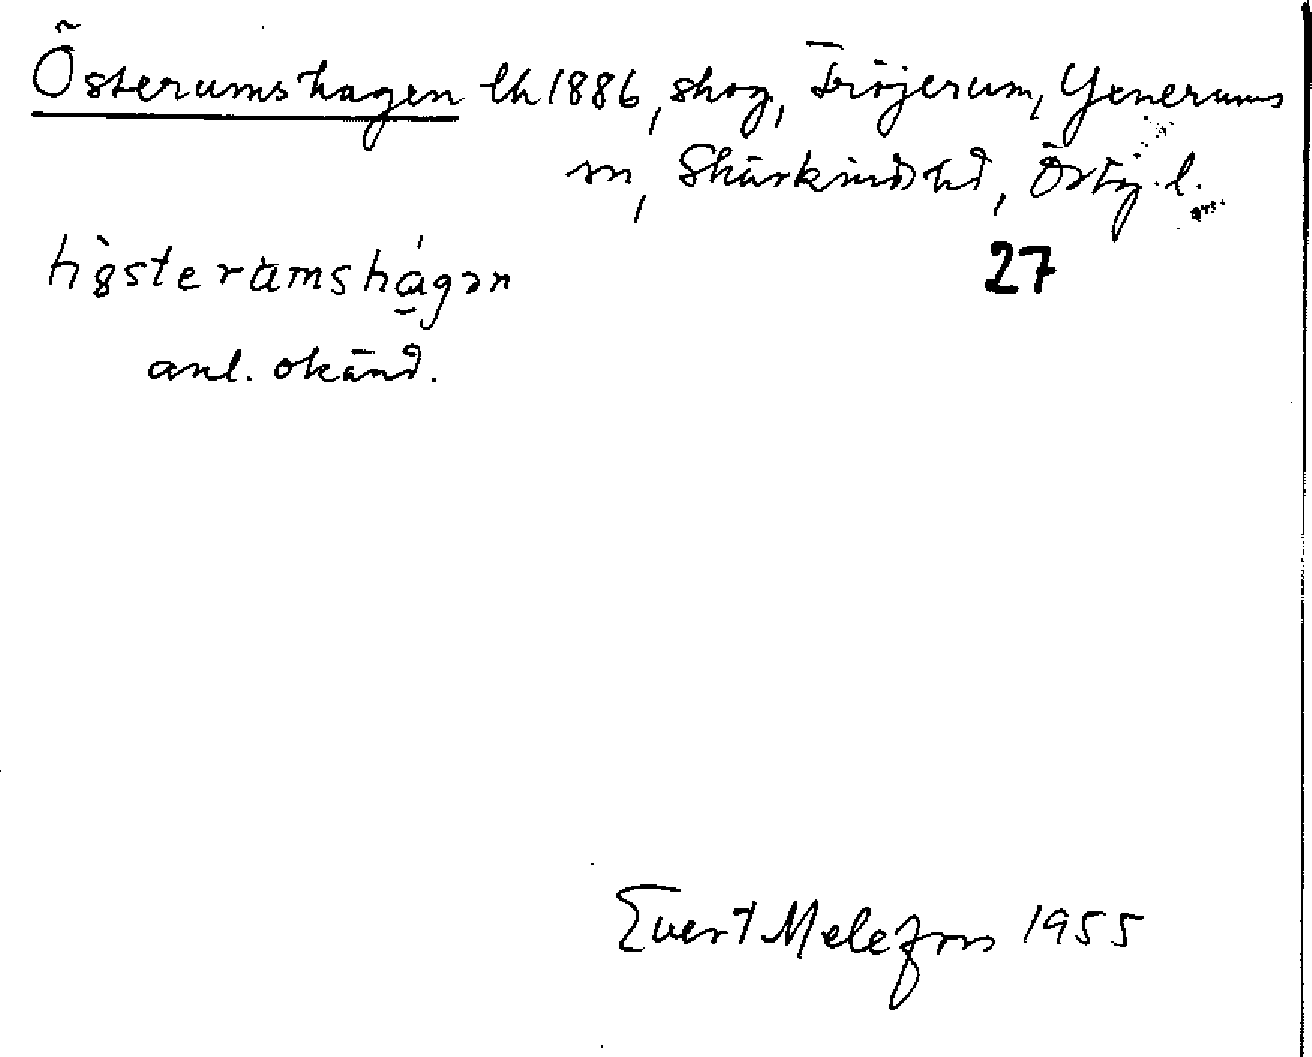 Österumshagen lh 1886, skog, Fröjerum, Yxnerums
sn, Skärkinds hd, Östg. l.
27
anl. okänd.
Evert Melefors 1955